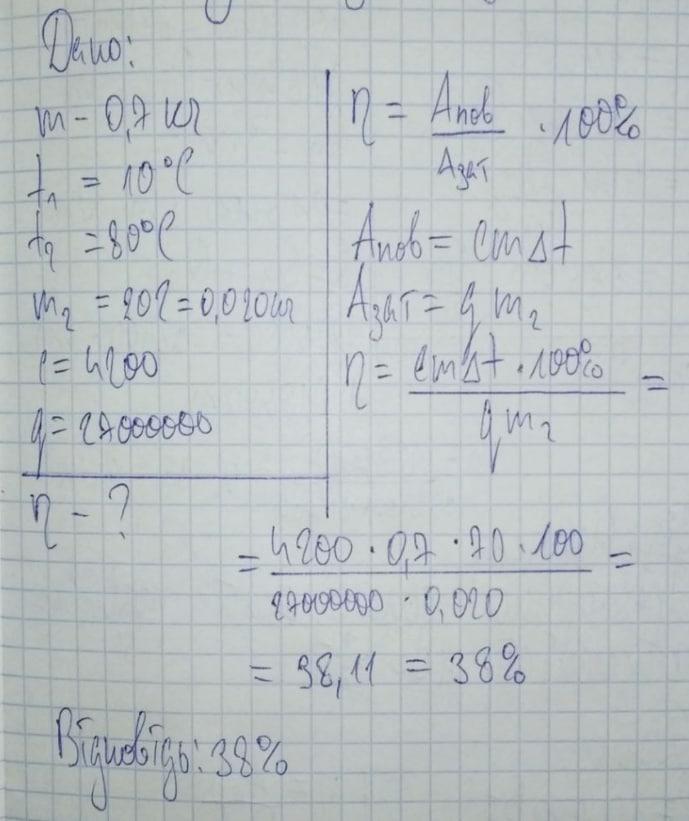 Дано:
m - 0,7 кг
t₁ = 10°C
t₂ = 80°C
m₂ = 20г = 0,020кг
c = 4200
q = 27000000
η - ?
η = Aпов / Aзат · 100%
Aпов = cmΔt
Aзат = q m₂
η = cmΔt · 100% / q m₂ =
= 4200 · 0,7 · 70 · 100 / 27000000 · 0,020 =
= 38,11 = 38%
Відповідь: 38%